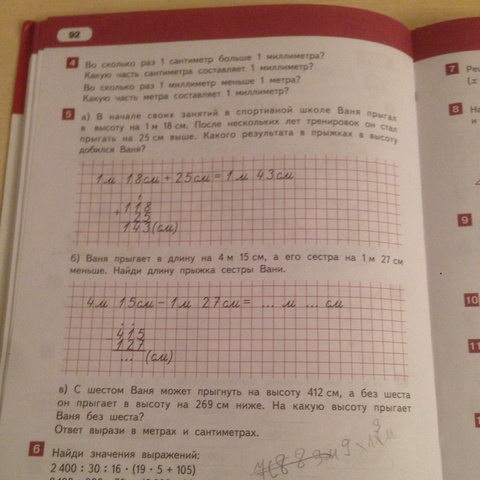 92
4 Во сколько раз 1 сантиметр больше 1 миллиметра?
Какую часть сантиметра составляет 1 миллиметр?
Во сколько раз 1 миллиметр меньше 1 метра?
Какую часть метра составляет 1 миллиметр?
5 а) В начале своих занятий в спортивной школе Ваня прыгал
в высоту на 1 м 18 см. После нескольких лет тренировок он стал
прыгать на 25 см выше. Какого результата в прыжках в высоту
добился Ваня?
1 м 18 см + 25 см = 1 м 43 см
+ 118
25
143 (см)
б) Ваня прыгает в длину на 4 м 15 см, а его сестра на 1 м 27 см
меньше. Найди длину прыжка сестры Вани.
4 м 15 см − 1 м 27 см = ... м ... см
− 415
127
... (см)
в) С шестом Ваня может прыгнуть на высоту 412 см, а без шеста
он прыгает в высоту на 269 см ниже. На какую высоту прыгает
Ваня без шеста?
Ответ вырази в метрах и сантиметрах.
6 Найди значения выражений:
2 400 : 30 : 16 · (19 · 5 + 105)
7 Реш
(x
8 На
и
9
10
11